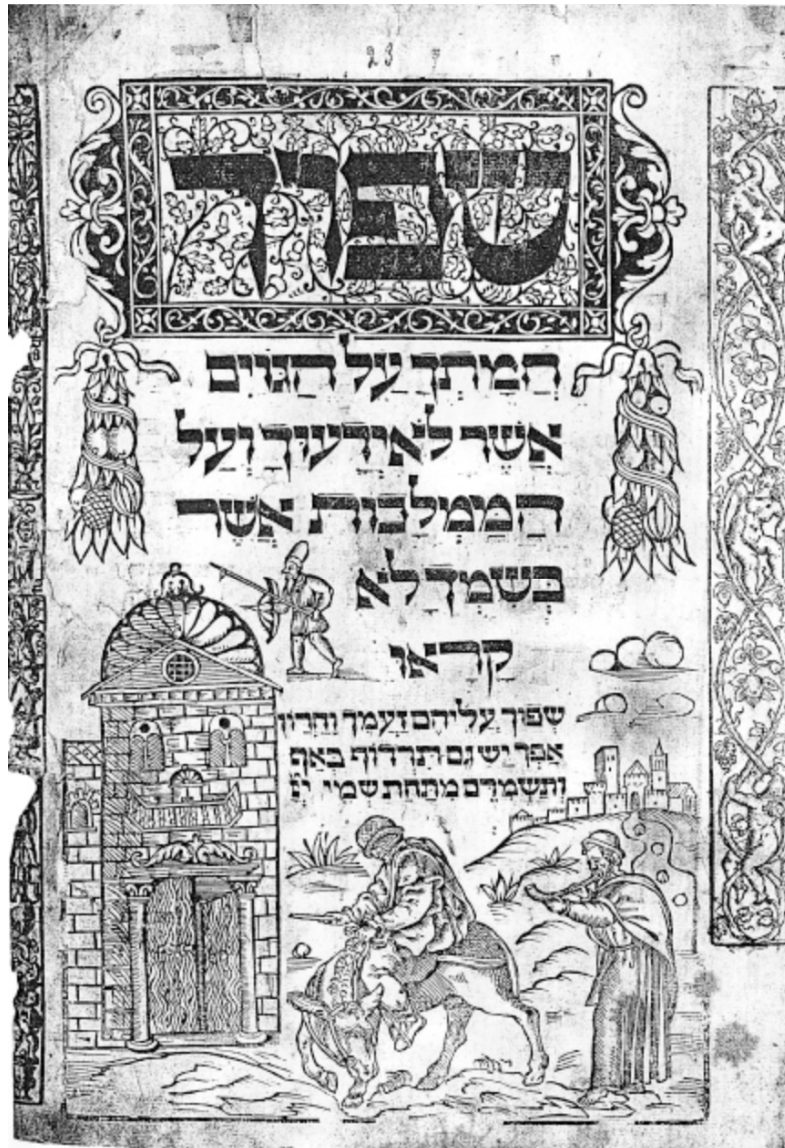 23
שפוך
חמתך על הגוים
אשר לא ידעוך ועל
הממלכות אשר
בשמך לא
קראו
שפוך עליהם זעמך וחרון
אפך ישיגם תרדוף באף
ותשמידם מתחת שמי יי